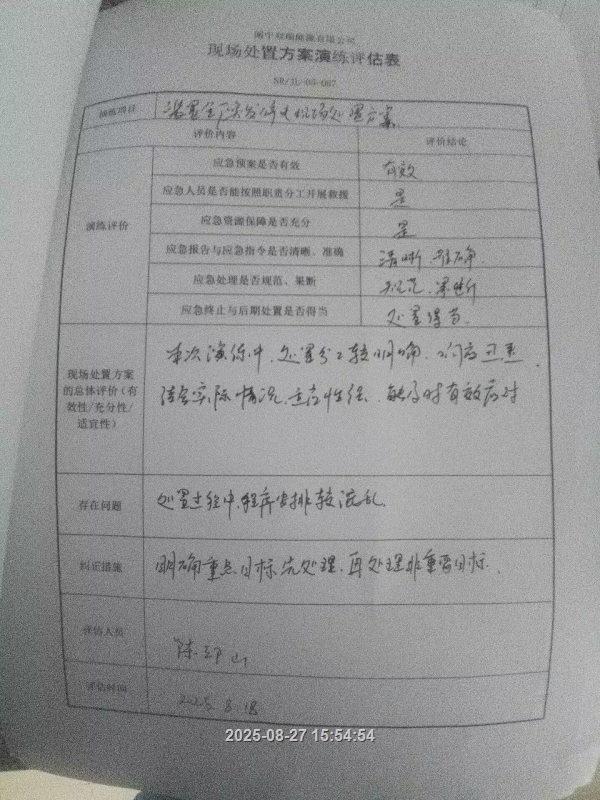 阜宁双瑞能源有限公司
现场处置方案演练评估表
NR/JL-05-067
演练项目 装置全厂突发停电现场处置方案
评价内容 评价结论
演练评价
应急预案是否有效 有效
应急人员是否能按照职责分工开展救援 是
应急资源保障是否充分 是
应急报告与应急指令是否清晰、准确 清晰、准确.
应急处理是否规范、果断 规范、果断
应急终止与后期处置是否得当 处置得当.
现场处置方案
的总体评价(有
效性/充分性/
适宜性)
本次演练中,处置分工较明确,响应迅速,
结合实际情况,适应性强,能及时有效应对
存在问题 处置过程中,程序安排较混乱.
纠正措施 明确重点目标先处理,再处理非重要目标.
评估人员 陈
评估时间 2025.8.18
2025-08-27 15:54:54